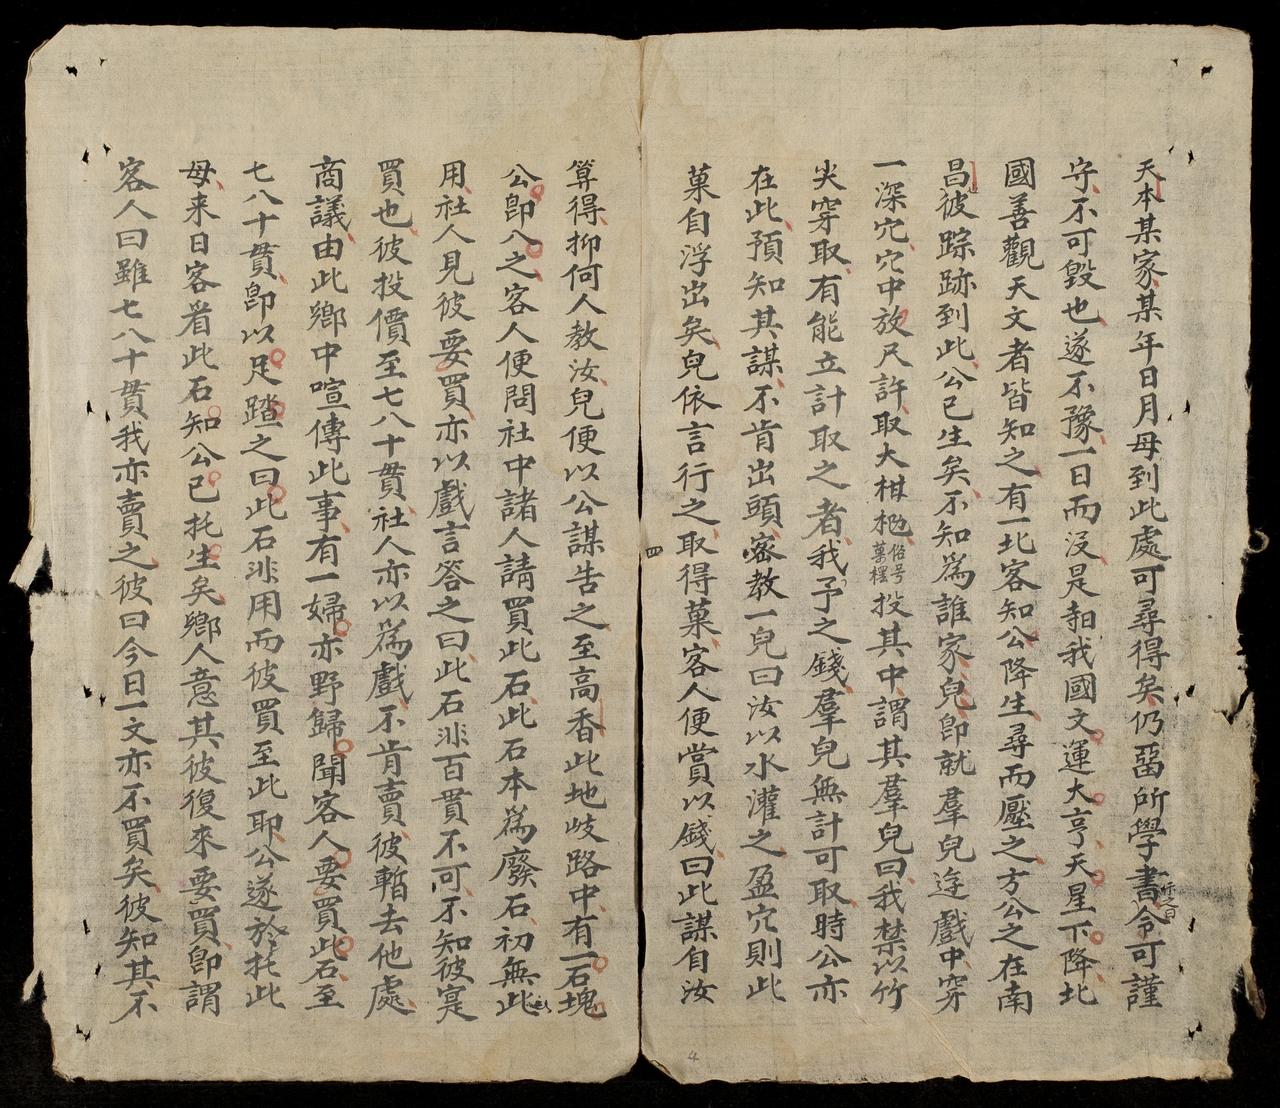 天本某家某年日月母到此處可尋得矣仍畱所學書令可謹
守不可毀也遂不豫一日而沒是我國文運大亨天星下降北
國善觀天文者皆知之有一北客知公降生尋而壓之方公之在南
昌彼踪跡到此公已生矣不知爲誰家兒卽就羣兒遊戲中穿
一深穴穴中放尺許取大柑投其中謂其羣兒曰我禁以竹
尖穿取有能立計取之者我予之錢羣兒無計可取時公亦
在此預知其謀不肯出頭密教一兒曰汝以水灌之盈穴則此
菓自浮出矣兒依言行之取得菓客人便賞以錢曰此謀自汝
四
算得抑何人教汝兒便以公謀告之至高香此地岐路中有一石塊
公卽八之客人便問社中諸人請買此石此石本爲廢石初無此
用社人見彼要買亦以戲言答之曰此石非百貫不可不知彼寔
買也彼投價至七八十貫社人亦以爲戲不肯賣彼暫去他處
商議由此鄉中喧傳此事有一婦亦野歸聞客人要買此石至
七八十貫卽以足踏之曰此石非用而彼買至此耶公遂於托此
母来日客看此石知公已托生矣鄉人意其彼復來要買卽謂
客人曰雖七八十貫我亦賣之彼曰今日一文亦不買矣彼知其不
4